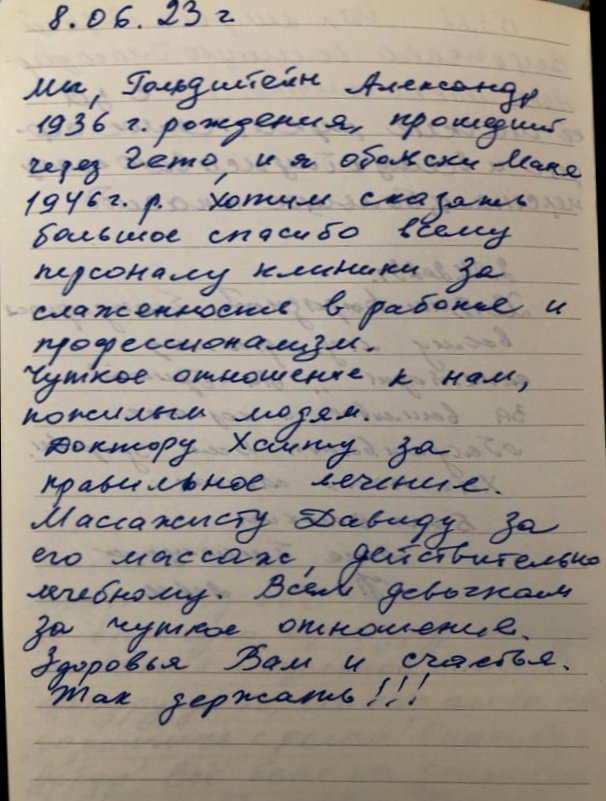 8.06.23 г.
Мы, Гольдштейн Александр
1936 г. рождения, прошедший
через Гетто, и я обольски Маня
1946 г. р. Хотим сказать
большое спасибо всему
персоналу клиники за
слаженность в работе и
профессионализм.
Чуткое отношение к нам,
пожилым людям.
Доктору Хаиму за
правильное лечение.
Массажисту Давиду за
его массаж, действительно
лечебному. Всем девочкам
за чуткое отношение.
Здоровья Вам и счастья.
Так держать!!!